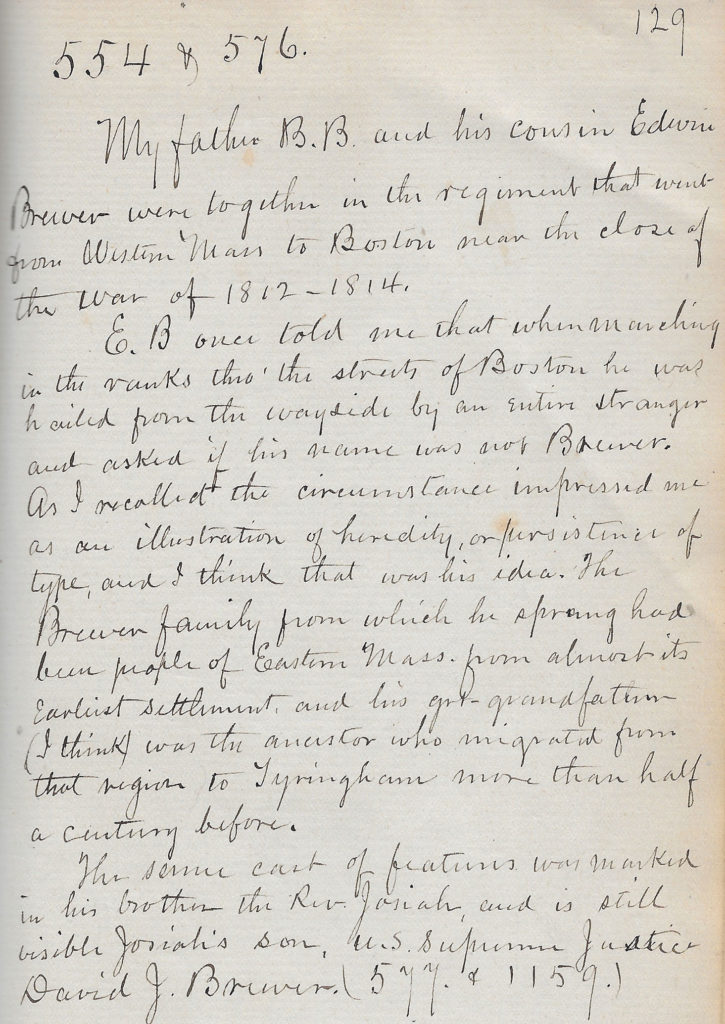 129
554 & 576.
My father B.B. and his cousin Edwin
Brewer were together in the regiment that went
from Western Mass to Boston near the close of
the war of 1812-1814.
E. B once told me that when marching
in the ranks thro' the streets of Boston he was
hailed from the wayside by an entire stranger
and asked if his name was not Brewer.
As I recollect the circumstance impressed me
as an illustration of heredity, or persistence of
type, and I think that was his idea. The
Brewer family from which he sprang had
been people of Eastern Mass. from almost its
earliest settlement, and his grt-grandfather
(I think) was the ancestor who migrated from
that region to Tyringham more than half
a century before.
The same cast of features was marked
in his brother the Rev. Josiah, and is still
visible Josiah's son, U.S. Supreme Justice
David J. Brewer. (577. & 1159.)